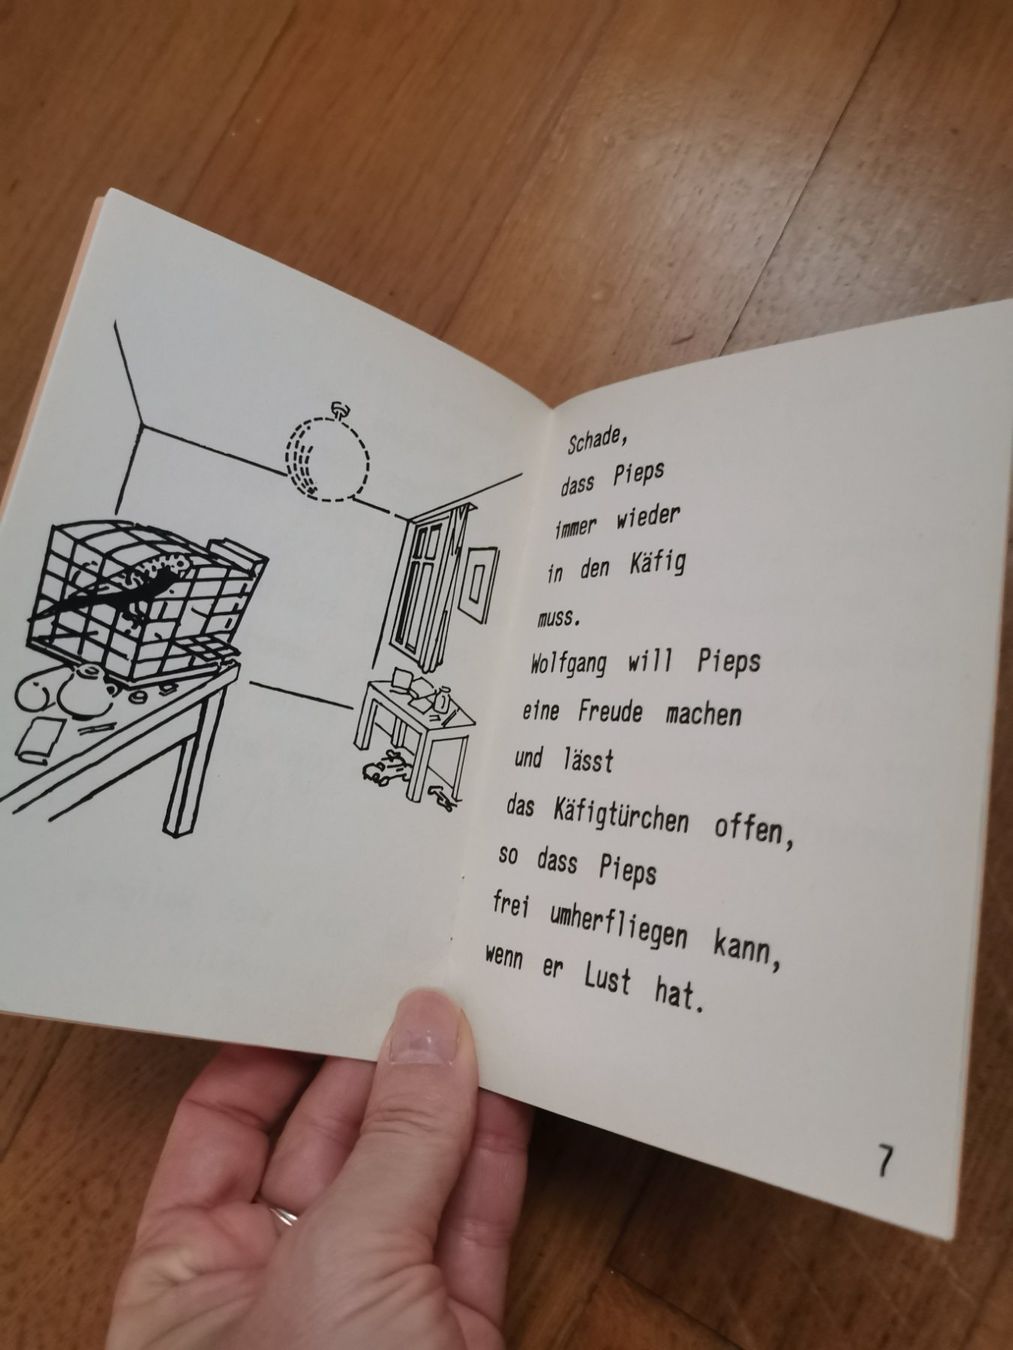 Schade,
dass Pieps
immer wieder
in den Käfig
muss.
Wolfgang will Pieps
eine Freude machen
und lässt
das Käfigtürchen offen,
so dass Pieps
frei umherfliegen kann,
wenn er Lust hat.
7